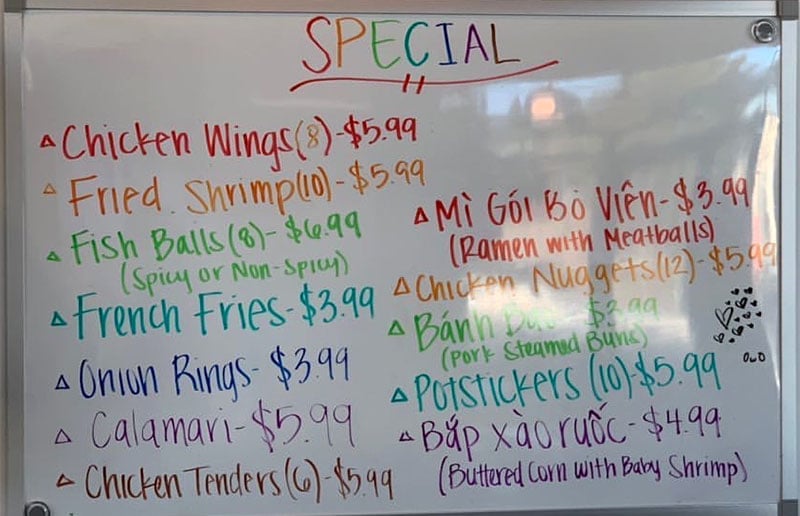 SPECIAL
Chicken Wings(8)-$5.99
Fried Shrimp(10)-$5.99
Fish Balls(8)-$6.99
(Spicy or Non-Spicy)
French Fries-$3.99
Onion Rings-$3.99
Calamari-$5.99
Chicken Tenders(6)-$5.99
Mì Gói Bò Viên-$3.99
(Ramen with Meatballs)
Chicken Nuggets(12)-$5.99
Bánh Bao $3.99
(Pork Steamed Buns)
Potstickers (10)-$5.99
Bắp xào ruốc-$4.99
(Buttered Corn with Baby Shrimp)
OwO